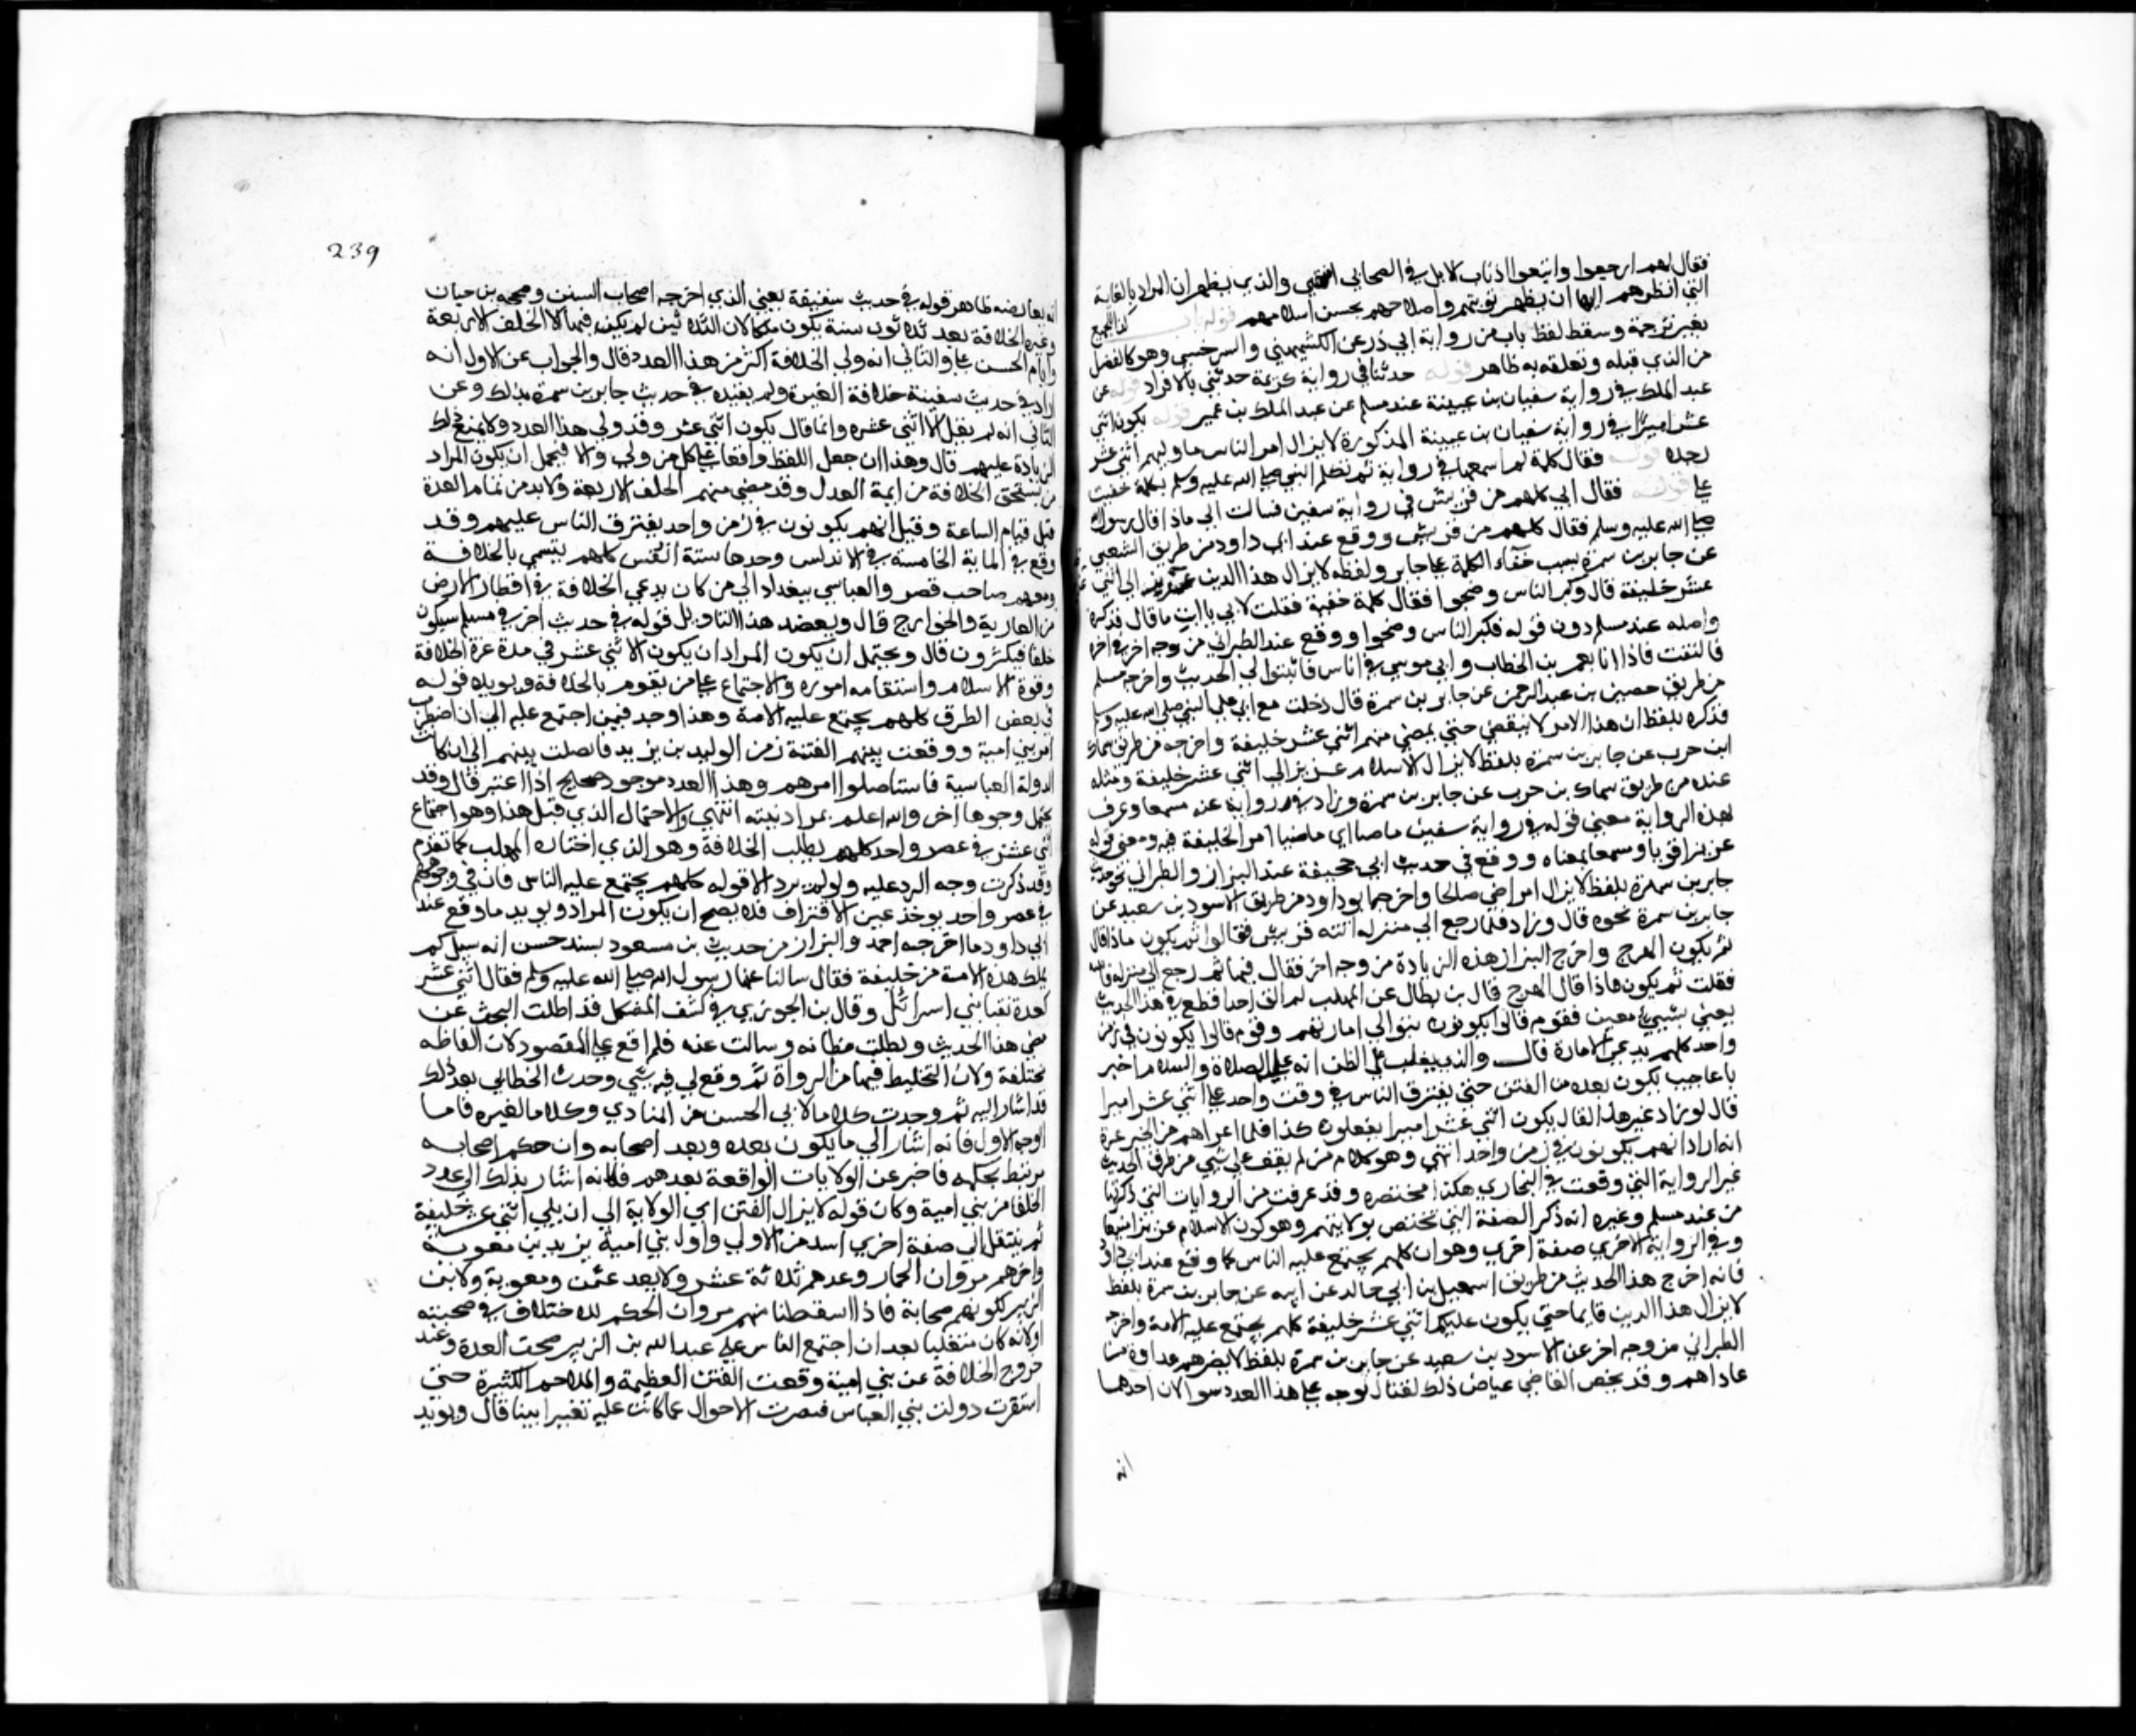 فقال لهم ارجعوا واتبعوا اذناب الابل في الصحاري انتهي والذي يظهر ان المراد بالغاية
التي انظرهم اليها ان يظهر توبتهم وصلاحهم بحسن اسلامهم قوله باب كذا للجميع
بغير ترجمة وسقط لفظ باب من رواية ابي ذر عن الكشميهني والسرخسي وهو كالفصل
من الذي قبله وتعلقه به ظاهر قوله حدثنا في رواية كريمة حدثني بالافراد قوله عن
عبد الملك في رواية سفيان بن عيينة عند مسلم عن عبد الملك بن عمير قوله يكون اثني
عشر اميرا في رواية سفيان بن عيينة المذكورة لا يزال امر الناس ماضيا ما وليهم اثني عشر
رجلا قوله فقال كلمة لم اسمعها في رواية ثم تكلم النبي صلي الله عليه وسلم بكلمة خفيت
علي قوله فقال ابي كلهم من قريش في رواية سفين فسالت ابي ماذا قال رسول الله
صلي الله عليه وسلم فقال كلهم من قريش ووقع عند ابي داود من طريق الشعبي
عن جابر بن سمرة سبب خفاء الكلمة علي جابر ولفظه لا يزال هذا الدين عزيزا الي اثني
عشر خليفة قال وكبر الناس وضجوا فقال كلمة خفية فقلت لابي يا ابت ما قال فذكره
واصله عند مسلم دون قوله فكبر الناس وضجوا ووقع عند الطبراني من وجه اخر في اخره
فالتفت فاذا انا بعمر بن الخطاب وابي موسي في اناس فاثبتوا لي الحديث واخرجه مسلم
من طريق حصين بن عبد الرحمن عن جابر بن سمرة قال دخلت مع ابي علي النبي صلي الله عليه وسلم
فذكره بلفظ ان هذا الامر لا ينقضي حتي يمضي منهم اثني عشر خليفة واخرجه من طريق سماك
ابن حرب عن جابر بن سمرة بلفظ لا يزال الاسلام عزيزا الي اثني عشر خليفة ومثله
عنده من طريق سماك بن حرب عن جابر بن سمرة وزاد في رواية عنه منيعا وعرف
بهذه الرواية معني قوله في رواية سفين ماضيا اي ماضيا امر الخليفة فيه ومعني قوله
عزيزا قويا ومنيعا بمعناه ووقع في حديث ابي جحيفة عند البزار والطبراني نحو حديث
جابر بن سمرة بلفظ لا يزال امر امتي صالحا واخرجه ابو داود من طريق الاسود بن سعيد عن
جابر بن سمرة نحوه قال وزاد فلما رجع الي منزله اتته قريش فقالوا ثم يكون ماذا قال
ثم يكون الهرج واخرج البزار هذه الزيادة من وجه اخر فقال فيها ثم رجع الي منزله فاتيته
فقلت ثم يكون ماذا قال الهرج قال بن بطال عن المهلب لم الق احدا قطع في هذا الحديث
يعني بشيء معين فقوم قالوا يكونون بتوالي امارتهم وقوم قالوا يكونون في زمن
واحد كلهم يدعي الامارة قال والذي يغلب علي الظن انه عليه الصلاة والسلام اخبر
باعاجيب يكون بعده من الفتن حتي يفترق الناس في وقت واحد علي اثني عشر اميرا
قال لو زاد غير هذا لقال يكون اثني عشر اميرا يفعلون كذا فلما اعراهم من الخبر عرفنا
انه اراد انهم يكونون في زمن واحد انتهي وهو كلام من لم يقف علي شيء من طرق الحديث
غير الرواية التي وقعت في البخاري هكذا مختصرة وقد عرفت من الروايات التي ذكرتها
من عند مسلم وغيره انه ذكر الصفة التي تختص بولايتهم وهو كون الاسلام عزيزا منيعا
وفي الرواية الاخري صفة اخري وهو ان كلهم يجتمع عليه الناس كما وقع عند ابي داود
فانه اخرج هذا الحديث من طريق اسمعيل بن ابي خالد عن ابيه عن جابر بن سمرة بلفظ
لا يزال هذا الدين قايما حتي يكون عليكم اثني عشر خليفة كلهم يجتمع عليه الامة واخرجه
الطبراني من وجه اخر عن الاسود بن سعيد عن جابر بن سمرة بلفظ لا يضرهم عداوة من
عاداهم وقد لخص القاضي عياض ذلك فقال توجه علي هذا العدد سوالان احدهما
انه
239
انه يعارضه ظاهر قوله في حديث سفينة يعني الذي اخرجه اصحاب السنن وصححه بن حبان
وغيره الخلافة بعد ثلاثون سنة يكون ملكا لان الثلاثين لم يكن فيها الا الخلفا الاربعة
وايام الحسن بن علي والثاني انه ولي الخلافة اكثر من هذا العدد قال والجواب عن الاول انه
اراد في حديث سفينة خلافة النبوة ولم يقيده في حديث جابر بن سمرة بذلك وعن
الثاني انه لم يقل الا اثني عشر وانما قال يكون اثني عشر وقد ولي هذا العدد ولا يمنع ذلك
الزيادة عليهم قال وهذا ان جعل اللفظ واقعا علي كل من ولي والا فيحتمل ان يكون المراد
من يستحق الخلافة من ايمة العدل وقد مضي منهم الخلفا الاربعة ولا بد من تمام العدة
قبل قيام الساعة وقيل انهم يكونون في زمن واحد يفترق الناس عليهم وقد
وقع في الماية الخامسة في الاندلس وحدها ستة انفس كلهم يتسمي بالخلافة
ومعهم صاحب مصر والعباسي ببغداد الي من كان يدعي الخلافة في اقطار الارض
من العلوية والخوارج قال ويعضد هذا التاويل قوله في حديث اخر في مسلم سيكون
خلفا فيكثرون قال ويحتمل ان يكون المراد ان يكون الاثني عشر في مدة عزة الخلافة
وقوة الاسلام واستقامة اموره والاجتماع علي من يقوم بالخلافة ويويده قوله
في بعض الطرق كلهم يجتمع عليه الامة وهذا وجد فيمن اجتمع عليه الي ان اضطرب
امر بني امية ووقعت بينهم الفتنة زمن الوليد بن يزيد فاتصلت بينهم الي ان كانت
الدولة العباسية فاستاصلوا امرهم وهذا العدد موجود صحيح اذا اعتبر قال وقد
يحتمل وجوها اخر والله اعلم بمراد نبيه انتهي والاحتمال الذي قبل هذا وهو اجتماع
اثني عشر في عصر واحد كلهم يطلب الخلافة وهو الذي اختاره المهلب كما تقدم
وقد ذكرت وجه الرد عليه ولو لم يرد الا قوله كلهم يجتمع عليه الناس فان في وجودهم
في عصر واحد يوجد عين الافتراق فلا يصح ان يكون المراد ويويد ما وقع عند
ابي داود ما اخرجه احمد والبزار من حديث بن مسعود بسند حسن انه سيل كم
يملك هذه الامة من خليفة فقال سالنا عنها رسول الله صلي الله عليه وسلم فقال اثني عشر
كعدة نقبا بني اسرائل وقال بن الجوزي في كشف المشكل قد اطلت البحث عن
معني هذا الحديث وتطلبت مظانه وسالت عنه فلم اقع علي المقصود لان الفاظه
مختلفة ولان التخليط فيها من الرواة ثم وقع لي فيه شي وجدت الخطابي بعد ذلك
قد اشار اليه ثم وجدت كلاما لابي الحسن بن المنادي وكلاما لغيره فاما
الوجه الاول فانه اشار الي ما يكون بعده وبعد اصحابه وان حكم اصحابه
مرتبط بحكمه فاخبر عن الولايات الواقعة بعدهم فكانه اشار بذلك الي عدد
الخلفا من بني امية وكان قوله لا يزال الفتن اي الولاية الي ان يلي اثني عشر خليفة
ثم ينتقل الي صفة اخري اشد من الاولي واول بني امية يزيد بن معوية
واخرهم مروان الحمار وعدهم ثلاثة عشر ولا يعد عثمن ومعوية ولا بن
الزبير لكونهم صحابة فاذا اسقطنا منهم مروان الحكم للاختلاف في صحبته
او لانه كان متغلبا بعد ان اجتمع الناس علي عبد الله بن الزبير صحت العدة وعند
خروج الخلافة عن بني امية وقعت الفتن العظيمة والملاحم الكثيرة حتي
استقرت دولت بني العباس فتغيرت الاحوال عما كانت عليه تغييرا بينا قال ويويد